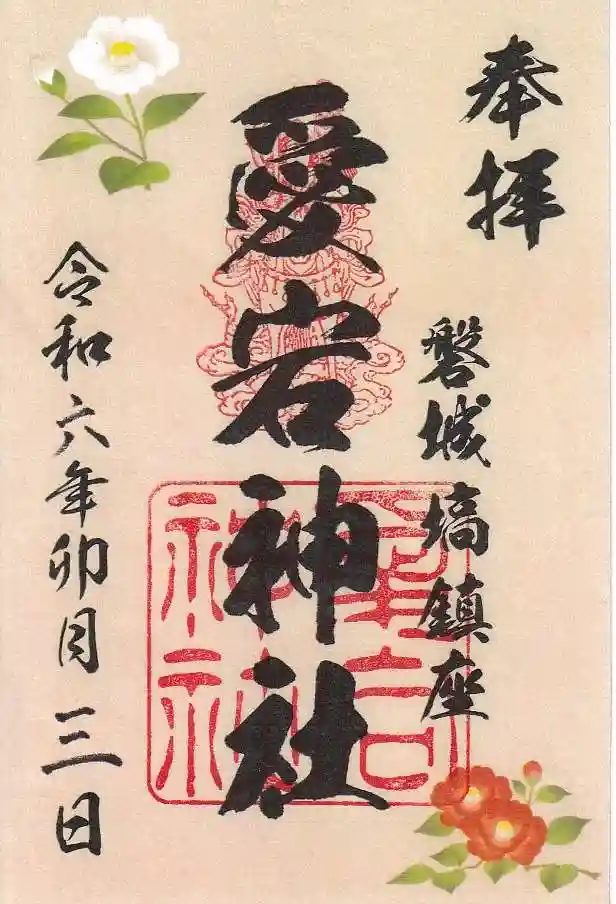 奉拝
磐城塙鎮座
愛宕神社
令和六年卯月三日
愛宕神社